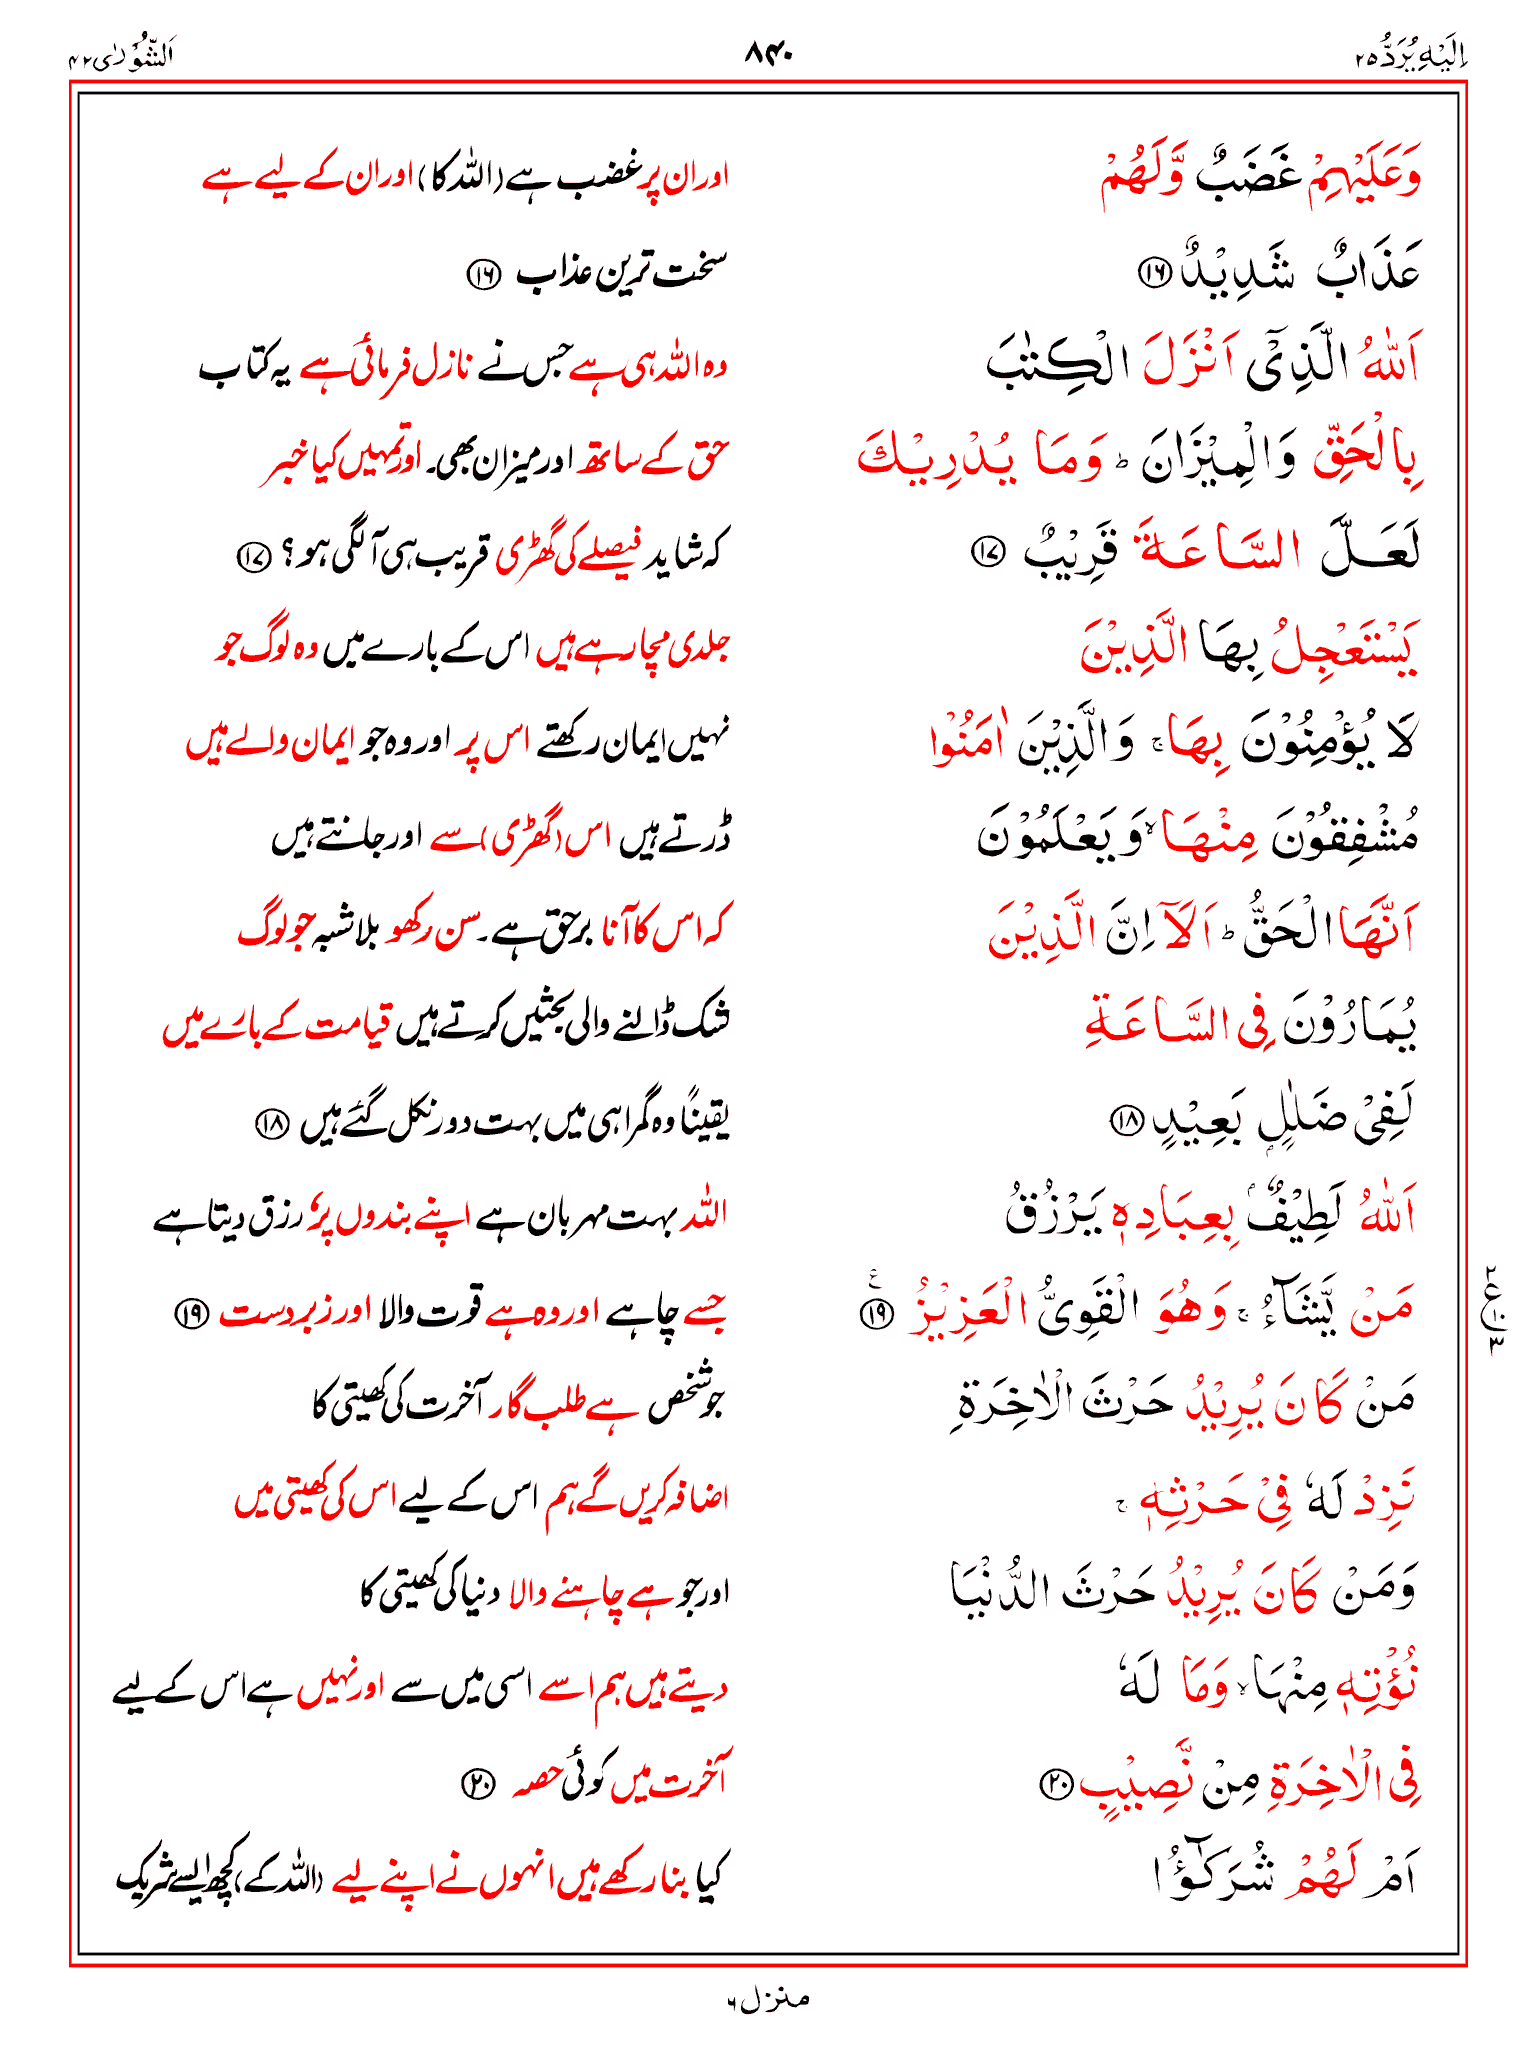 اِلَيْهِ يُرَدُّ ۲۵
۸۴۰
اَلشُّوْرٰى ۴۲
وَعَلَيْهِمْ غَضَبٌ وَّلَهُمْ
اور ان پر غضب ہے (اللہ کا) اور ان کے لیے ہے
عَذَابٌ شَدِيْدٌ ⑯
سخت ترین عذاب ⑯
اَللّٰهُ الَّذِىْۤ اَنْزَلَ الْكِتٰبَ
وہ اللہ ہی ہے جس نے نازل فرمائی ہے یہ کتاب
بِالْحَقِّ وَالْمِيْزَانَ ؕ وَمَا يُدْرِيْكَ
حق کے ساتھ اور میزان بھی۔ اور تمہیں کیا خبر
لَعَلَّ السَّاعَةَ قَرِيْبٌ ⑰
کہ شاید فیصلے کی گھڑی قریب ہی آ لگی ہو؟ ⑰
يَسْتَعْجِلُ بِهَا الَّذِيْنَ
جلدی مچا رہے ہیں اس کے بارے میں وہ لوگ جو
لَا يُؤْمِنُوْنَ بِهَا ۚ وَالَّذِيْنَ اٰمَنُوْا
نہیں ایمان رکھتے اس پر اور وہ جو ایمان والے ہیں
مُشْفِقُوْنَ مِنْهَا ۙ وَيَعْلَمُوْنَ
ڈرتے ہیں اس (گھڑی) سے اور جانتے ہیں
اَنَّهَا الْحَقُّ ؕ اَلَاۤ اِنَّ الَّذِيْنَ
کہ اس کا آنا برحق ہے۔ سن رکھو بلاشبہ جو لوگ
يُمَارُوْنَ فِى السَّاعَةِ
شک ڈالنے والی بحثیں کرتے ہیں قیامت کے بارے میں
لَفِىْ ضَلٰلٍۭ بَعِيْدٍ ⑱
یقیناً وہ گمراہی میں بہت دور نکل گئے ہیں ⑱
اَللّٰهُ لَطِيْفٌۢ بِعِبَادِهٖ يَرْزُقُ
اللہ بہت مہربان ہے اپنے بندوں پر، رزق دیتا ہے
مَنْ يَّشَآءُ ۚ وَهُوَ الْقَوِىُّ الْعَزِيْزُ ⑲ ع
جسے چاہے اور وہ ہے قوت والا اور زبردست ⑲
۲ ع ۱۰ ۳
مَنْ كَانَ يُرِيْدُ حَرْثَ الْاٰخِرَةِ
جو شخص ہے طلب گار آخرت کی کھیتی کا
نَزِدْ لَهٗ فِىْ حَرْثِهٖ ۚ
اضافہ کریں گے ہم اس کے لیے اس کی کھیتی میں
وَمَنْ كَانَ يُرِيْدُ حَرْثَ الدُّنْيَا
اور جو ہے چاہنے والا دنیا کی کھیتی کا
نُؤْتِهٖ مِنْهَا ۙ وَمَا لَهٗ
دیتے ہیں ہم اسے اسی میں سے اور نہیں ہے اس کے لیے
فِى الْاٰخِرَةِ مِنْ نَّصِيْبٍ ⑳
آخرت میں کوئی حصہ ⑳
اَمْ لَهُمْ شُرَكٰٓؤُا
کیا بنا رکھے ہیں انہوں نے اپنے لیے (اللہ کے) کچھ ایسے شریک
منزل ۶